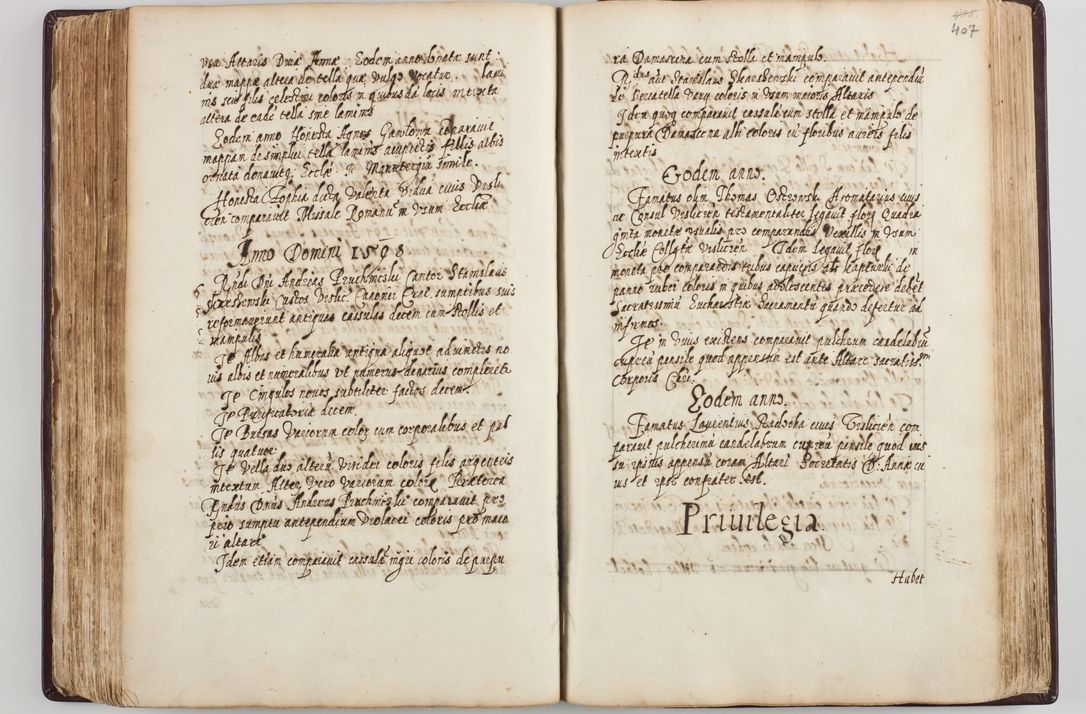 vsu Altaris Diuæ Annæ Eodem anno donatæ sunt
duæ mappæ altera de tella quæ vulgo vocatur
nis seu filis celestini coloris in quibusdā locis intexta
altera de eadē tella sine laminis
Eodem anno Honesta Agnes Gawlowa comparauit
mappam de simplici tella laminis filis albis
ornata donauitq Ecclæ Manutergiū simile.
Honesta Sophia dicta Valenta vidua ciuis Visli
cien comparauit Missale Romanū in vsum Ecclæ
Anno Domini 1598
Rñdi Dni Andreas Pruchnicski Cantor Stanislaus
Custos Vislic. Canonici Crac. sumptibus suis
reformauerunt antiquas cassulas decem cum stollis et
manipulis
Ité Albas et humeralia antiqua aliquot adiunctis no
uis albis et numeralibus vt numerus denarius compleretr
Ité Cingulos nouos subtiliter factos decem.
Ité Purificatoria decem.
Ité Bursas variorum color cum corporalibus et pal
lis quatuor
Ité Vella duo alterū viridis coloris filis argenteis
intextum Alter vero variorum color Præterea
Rndus Dnus Andreas Pruchnicski comparauit pro
prio sumptu antependium violacei coloris pro maio
ri altari
Idem etiam comparauit cassulā nigri coloris de purpu
407
ra Damascena cum stolla et manipulo.
R dnus Stanislaus comparauit antependiū
de Beccatella vary coloris in vsum maioris Altaris
Idem quoq comparauit cassulā cum stolla et manipulo de
purpura Damascena albi coloris cū floribus aureis filis
intextis
Eodem anno.
Famatus olim Thomas Ostrowski Aromatarius ciuis
ac Consul Vislicien testamentaliter legauit flor Quadra
ginta monetæ vsualis pro comparandis Vexillis in vsum
Ecclæ Collgtæ Vislicien Idem legauit flor in
moneta pro comparandis tribus capucijs als kapturki de
panno rubei coloris in quibus adolescentes præcedere debēt
Sacratissimū Eucharistiæ Sacramentū quando defertur ad
infirmos.
Ité in viuis existens comparauit pulchrum candelabrū
cupreū pensile quod appensum est ante Altare sacratiss:
Corporis Chri.
Eodem anno.
Famatus Laurentius Radocha ciues Vislicien com
parauit pulcherimū candelabrum cupreū pensile quod eius
sū ipsius appensū coram Altari Societatis D: Annæ cu
ius et ipse confrater est.
Priuilegia
Habet